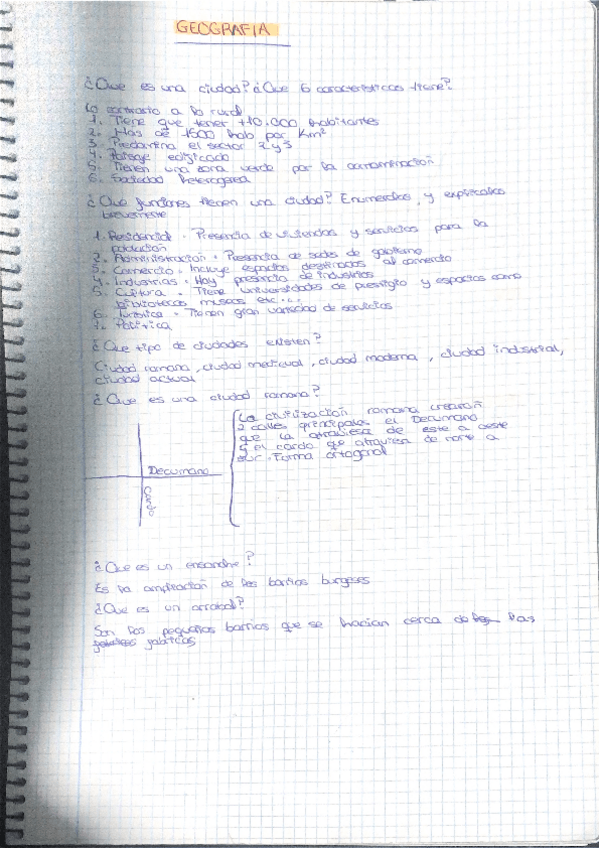 GEOGRAFIA
¿Que es una ciudad? ¿Que 6 caracteristicas tiene?
Lo contrario a lo rural
1. Tiene que tener +10.000 habitantes
2. Mas de 1500 hab por Km²
3. Predomina el sector 2 y 3
4. Paisaje edificado
5. Tienen una zona verde por la contaminación
6. Sociedad heterogenea
¿Que funciones tienen una ciudad? Enumeralas, y explicalas
brevemente
1. Residencial - Presencia de viviendas y servicios para la
población
2. Administración - Presencia de sedes de gobierno
3. Comercio - Incluye espacios destinados al comercio
4. Industrias - Hay presencia de industrias
5. Cultura - Tiene universidades de prestigio y espacios como
bibliotecas museos etc...
6. Turistica - Tienen gran variedad de servicios
7. Politica
¿Que tipo de ciudades existen?
Ciudad romana, ciudad medieval, ciudad moderna, ciudad industrial,
ciudad actual
¿Que es una ciudad romana?
La civilización romana crearon
2 calles principales el Decumano
que la atraviesa de este a oeste
y el cardo que atraviesa de norte a
sur. Forma ortogonal
Decumano
Cardo
¿Que es un ensanche?
Es la ampliación de los barrios burgeses
¿Que es un arrabal?
Son los pequeños barrios que se hacian cerca de las
fabricas